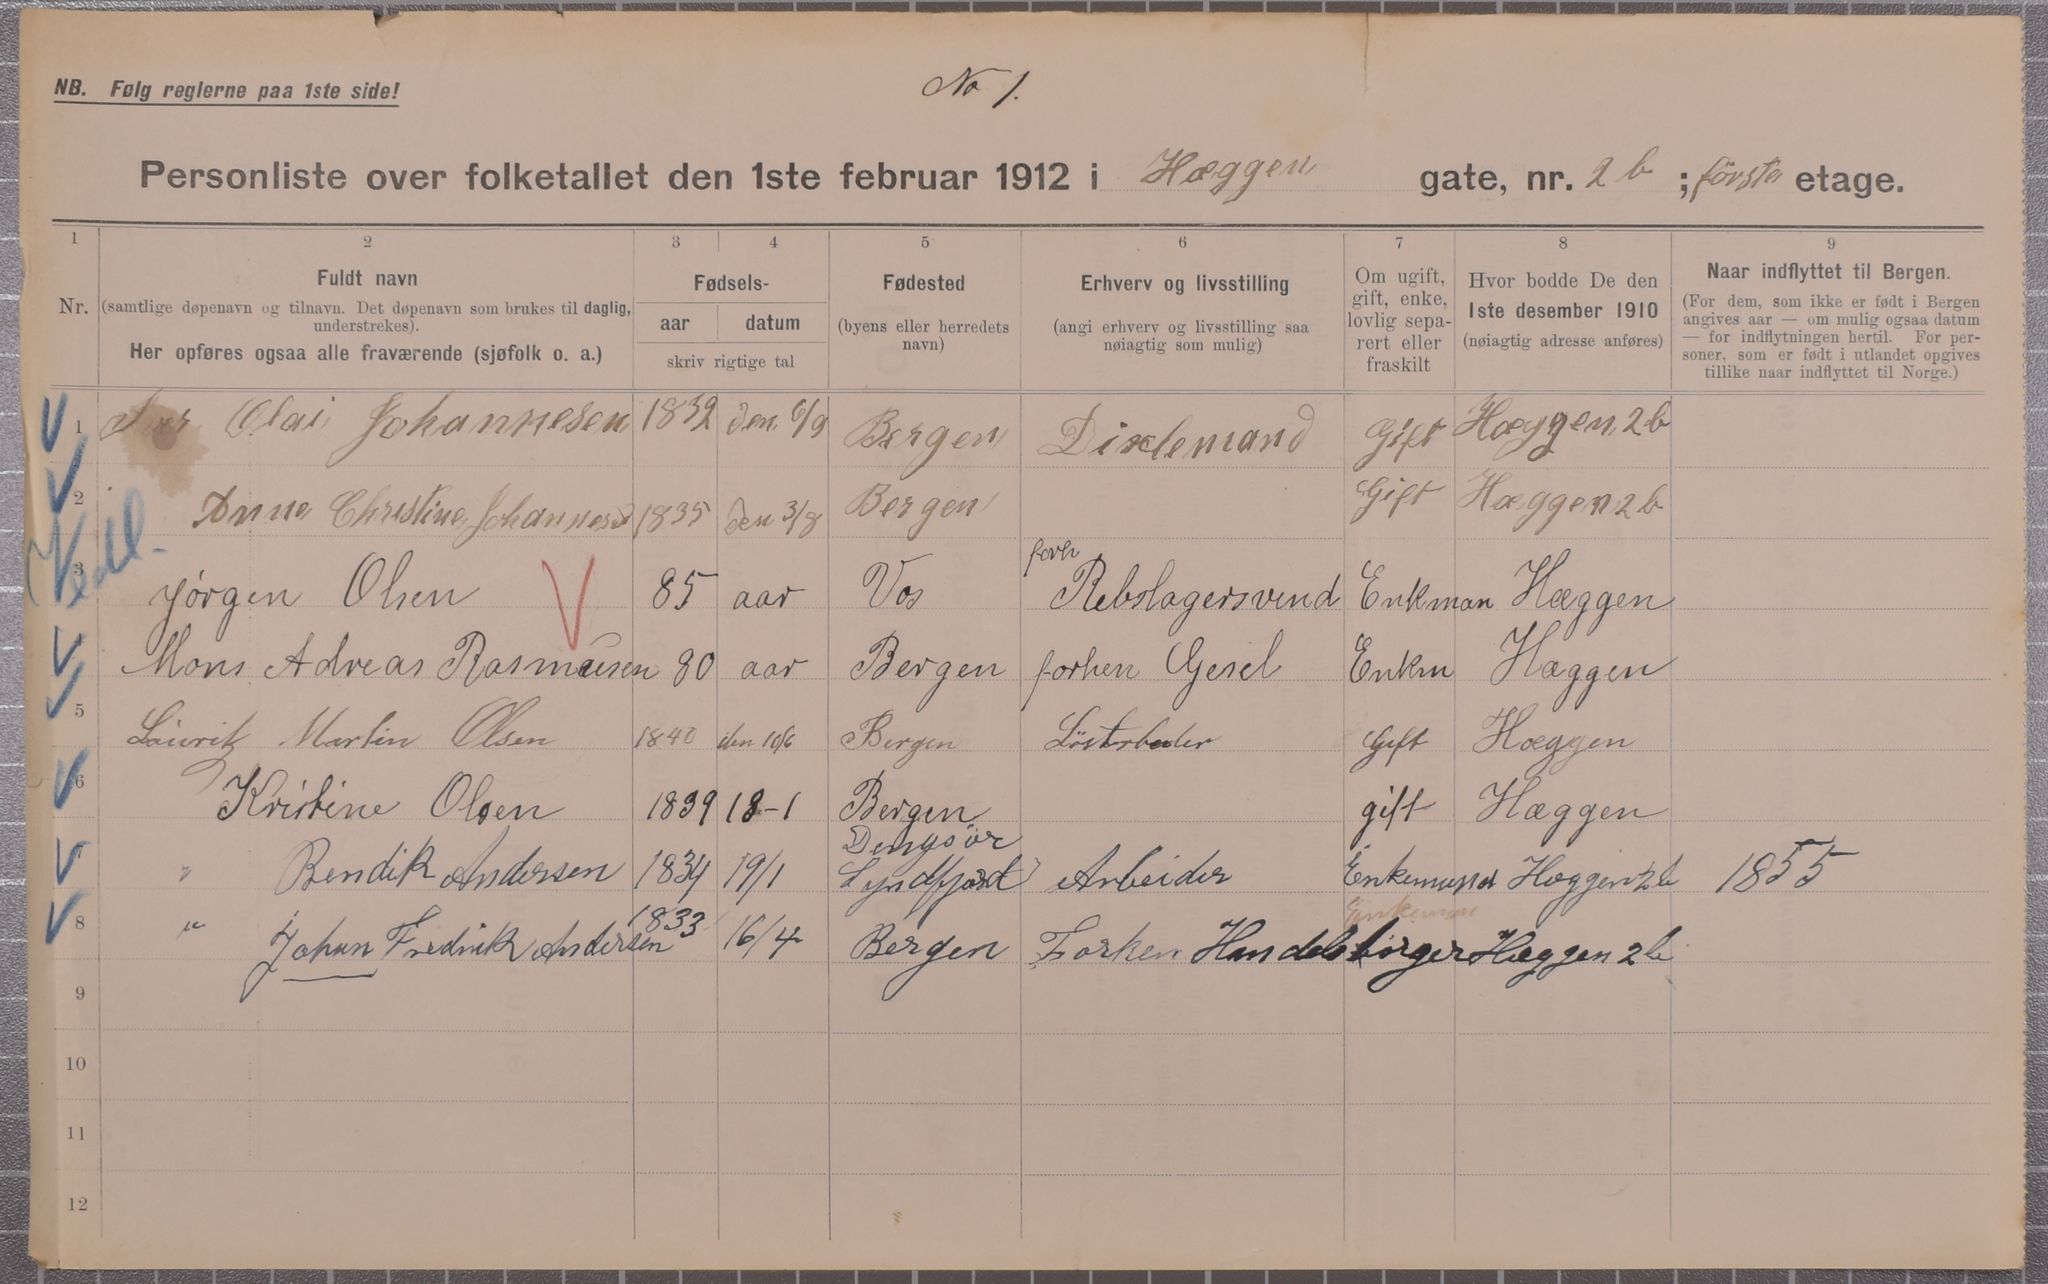 NB. Følg reglerne paa 1ste side!
No 1.
Personliste over folketallet den 1ste februar 1912 i Hæggen gate, nr. 2 b ; första etage.
1 2 3 4 5 6 7 8 9
Nr.
Fuldt navn
(samtlige døpenavn og tilnavn. Det døpenavn som brukes til daglig,
understrekes).
Her opføres ogsaa alle fraværende (sjøfolk o. a.)
Fødsels-
aar datum
skriv rigtige tal
Fødested
(byens eller herredets
navn)
Erhverv og livsstilling
(angi erhverv og livsstilling saa
nøiagtig som mulig)
Om ugift,
gift, enke,
lovlig sepa-
rert eller
fraskilt
Hvor bodde De den
1ste desember 1910
(nøiagtig adresse anføres)
Naar indflyttet til Bergen.
(For dem, som ikke er født i Bergen
angives aar — om mulig ogsaa datum
— for indflytningen hertil. For per-
soner, som er født i utlandet opgives
tillike naar indflyttet til Norge.)
1 Olai Johannesen 1832 den 6/9 Bergen Gift Hæggen 2 b
2 Anne Christine Johannesd 1835 den 3/8 Bergen Gift Hæggen 2 b
3 Jørgen Olsen 85 aar Vos forh Rebslagersvend Enkman Hæggen
4 Mons Adreas Rasmusen 80 aar Bergen forhen Gesel Enkm Hæggen
5 Lauritz Martin Olsen 1840 den 10/6 Bergen Gift Hæggen
6 Kristine Olsen 1839 18-1 Bergen gift Hæggen
" Bendik Andersen 1834 19/1 Arbeider Enkemand Hæggen 2 b 1855
8 " Johan Fredrik Andersen 1833 16/4 Bergen Forhen Handelsborger Enkeman Hæggen 2 b
9
10
11
12